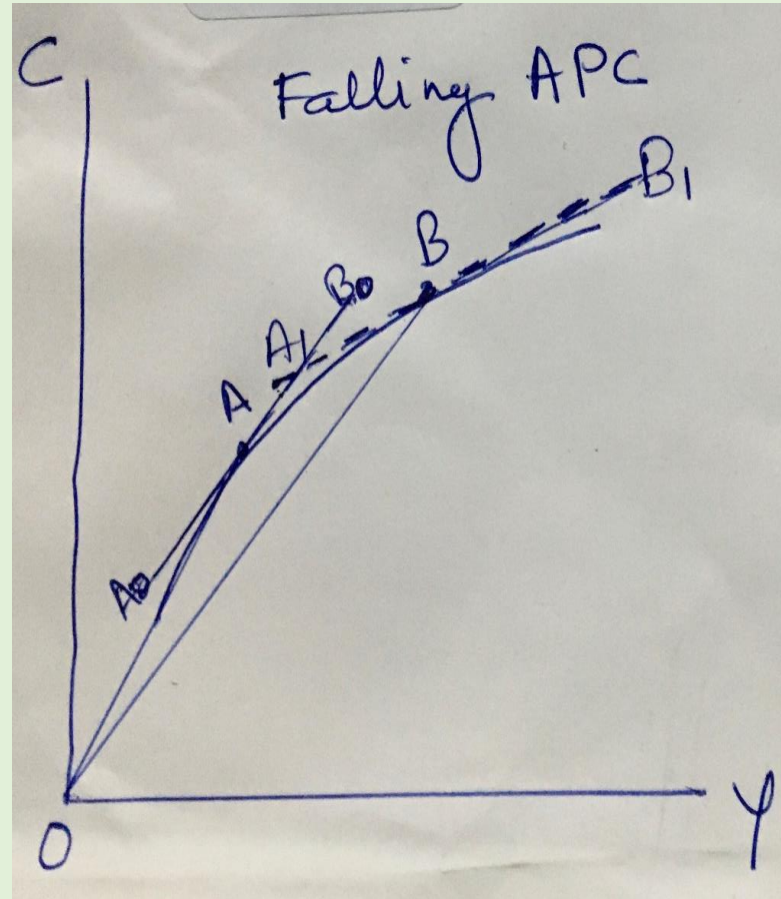 C
Falling APC
B1
B
B0
A1
A
A0
O
Y